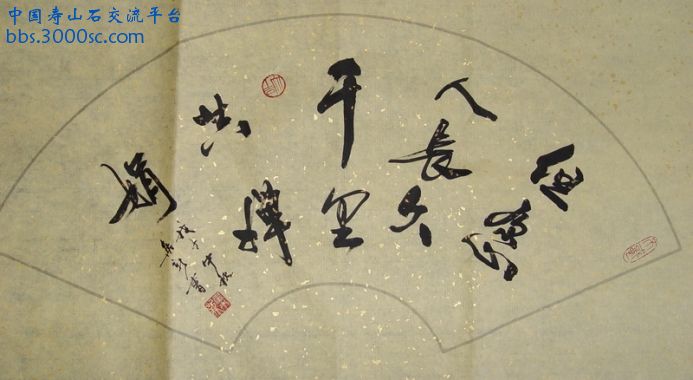 中国寿山石交流平台
bbs.3000sc.com
但愿
人长久
千里
共婵
娟